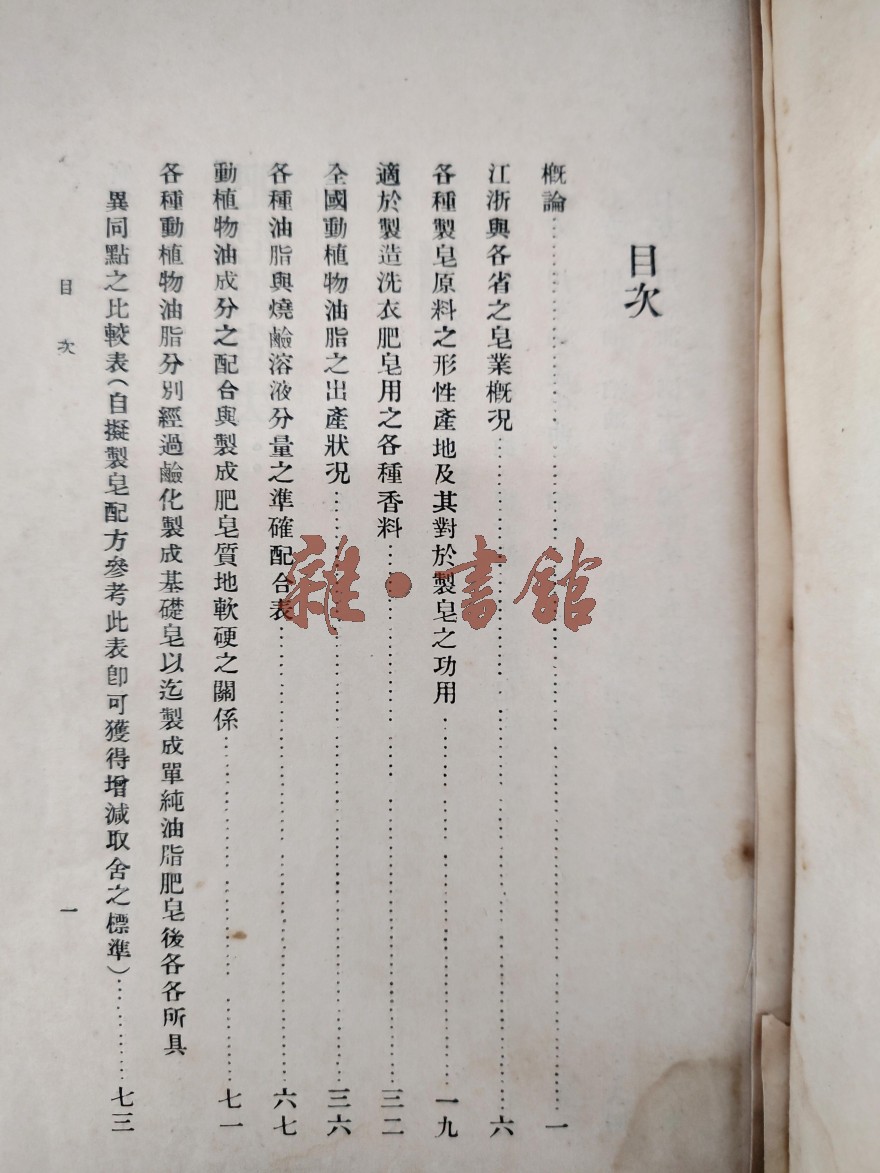 目次
概論……一
江浙與各省之皂業概况……六
各種製皂原料之形性產地及其對於製皂之功用……一九
適於製造洗衣肥皂用之各種香料……三二
全國動植物油脂之出產狀况……三六
各種油脂與燒鹼溶液分量之準確配合表……六七
動植物油成分之配合與製成肥皂質地軟硬之關係……七一
各種動植物油脂分別經過鹼化製成基礎皂以迄製成單純油脂肥皂後各各所具
異同點之比較表(自擬製皂配方參考此表卽可獲得增減取舍之標準)……七三
目次
一
雜·書館